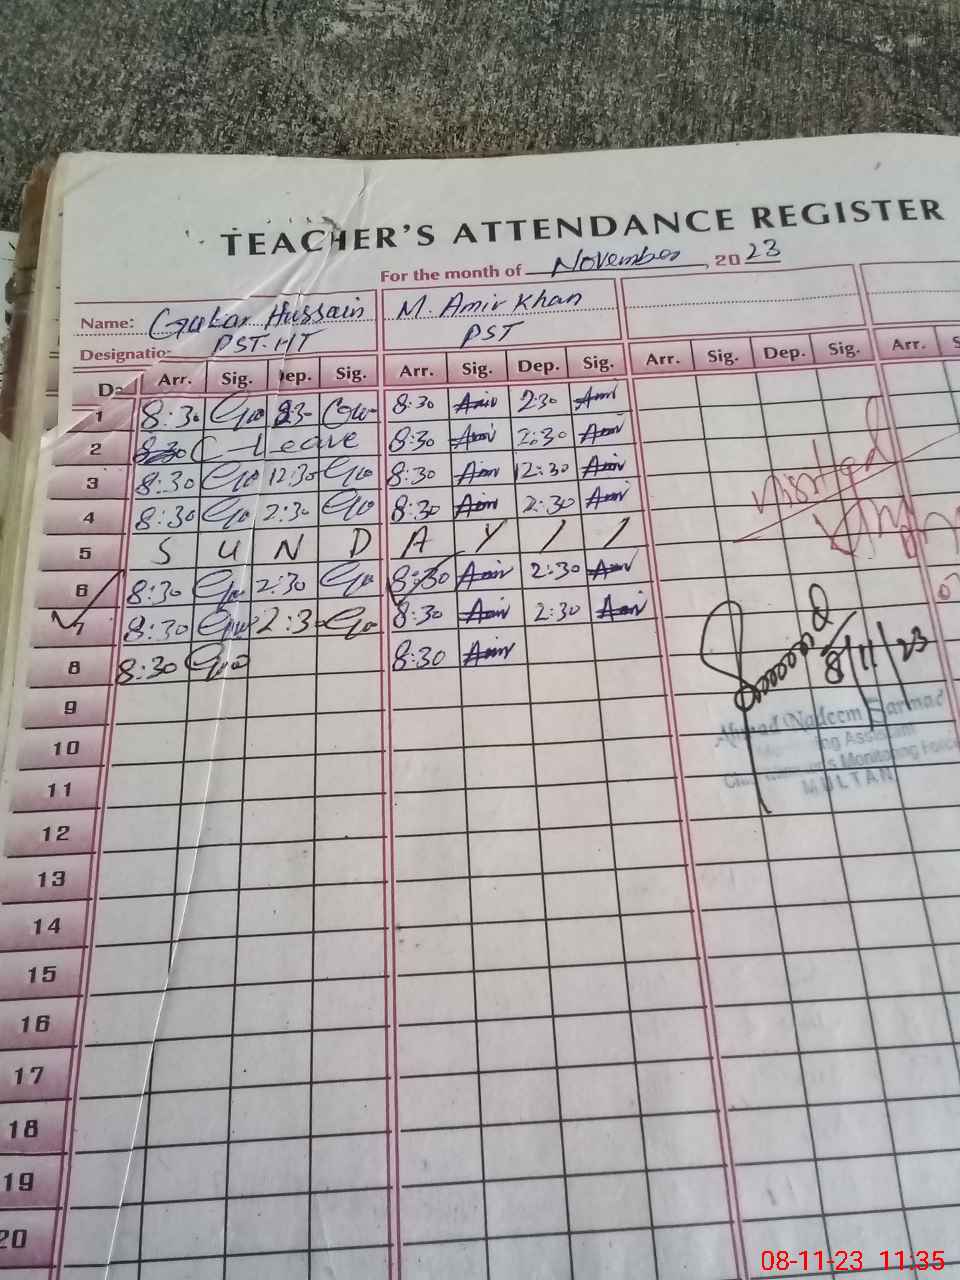 TEACHER'S ATTENDANCE REGISTER
For the month of November, 2023
Name: Hussain M. Amir Khan
Designatio PST-HT PST
Da Arr. Sig. Dep. Sig. Arr. Sig. Dep. Sig. Arr. Sig. Dep. Sig. Arr. S
1 8:30 8:30 Amir 2:30 Amir
2 8:30 C-Leave 8:30 Amir 2:30 Amir
3 8:30 12:30 8:30 Amir 12:30 Amir
4 8:30 2:30 8:30 Amir 2:30 Amir
5 S U N D A Y / /
6 8:30 2:30 8:30 Amir 2:30 Amir
7 8:30 2:3 8:30 Amir 2:30 Amir
8 8:30 8:30 Amir
visited
8/11/23
Ahmad Nadeem Sarmad
ing Assistant
's Monitoring Force
MULTAN
9
10
11
12
13
14
15
16
17
18
19
20
08-11-23 11:35